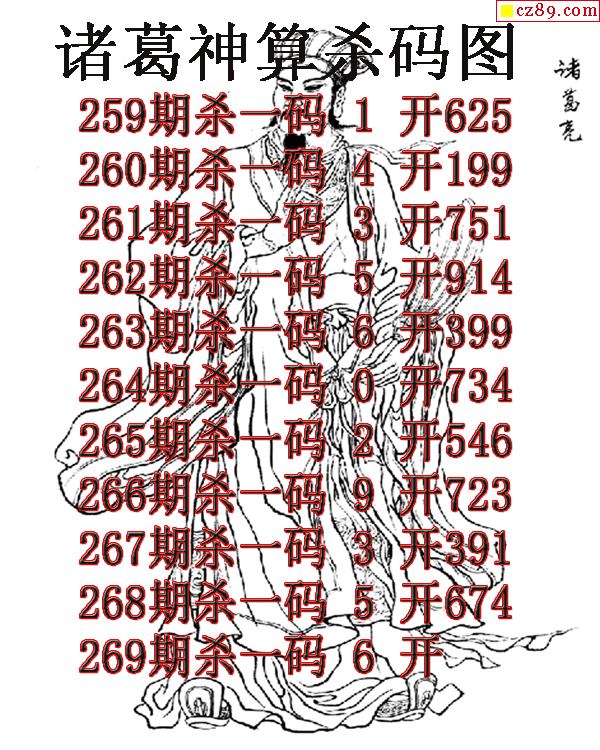 cz89.com
诸葛神算杀码图
诸葛亮
259期杀一码 1 开625
260期杀一码 4 开199
261期杀一码 3 开751
262期杀一码 5 开914
263期杀一码 6 开399
264期杀一码 0 开734
265期杀一码 2 开546
266期杀一码 9 开723
267期杀一码 3 开391
268期杀一码 5 开674
269期杀一码 6 开